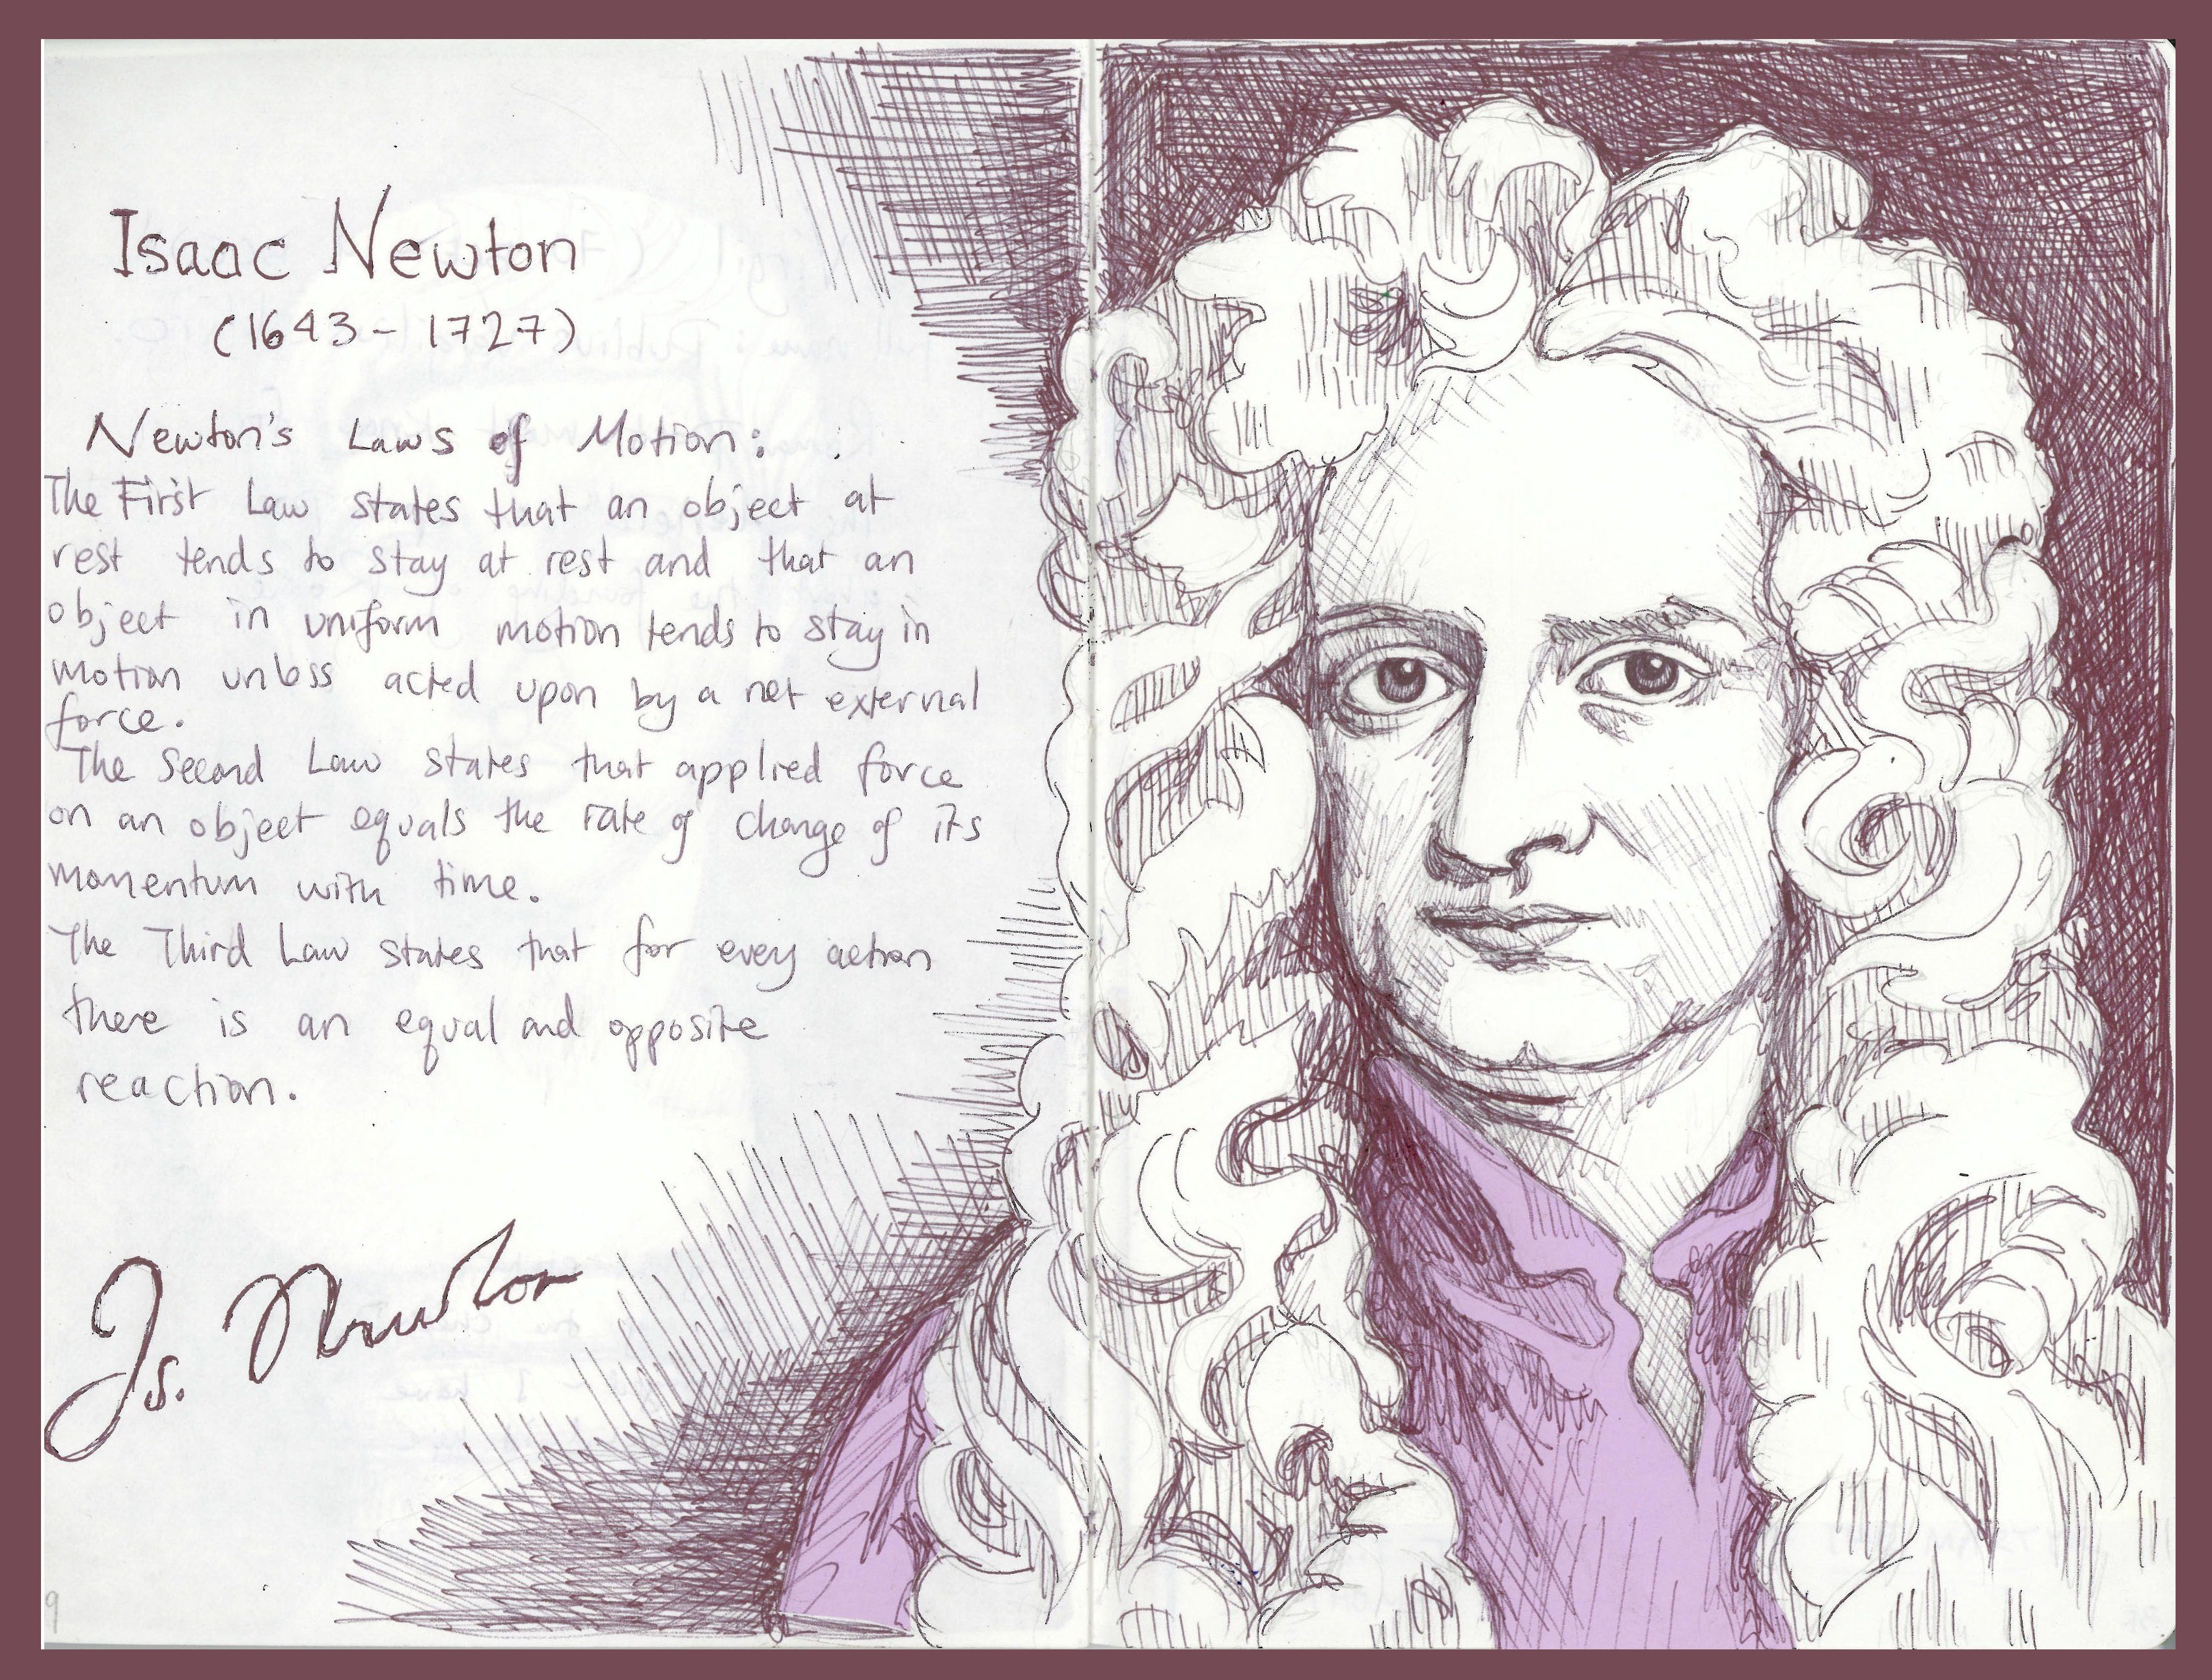 Isaac Newton
(1643 - 1727)
Newton's Laws of Motion:
The First Law states that an object at
rest tends to stay at rest and that an
object in uniform motion tends to stay in
motion unless acted upon by a net external
force.
The Second Law states that applied force
on an object equals the rate of change of its
momentum with time.
The Third Law states that for every action
there is an equal and opposite
reaction.
Is. Newton
9